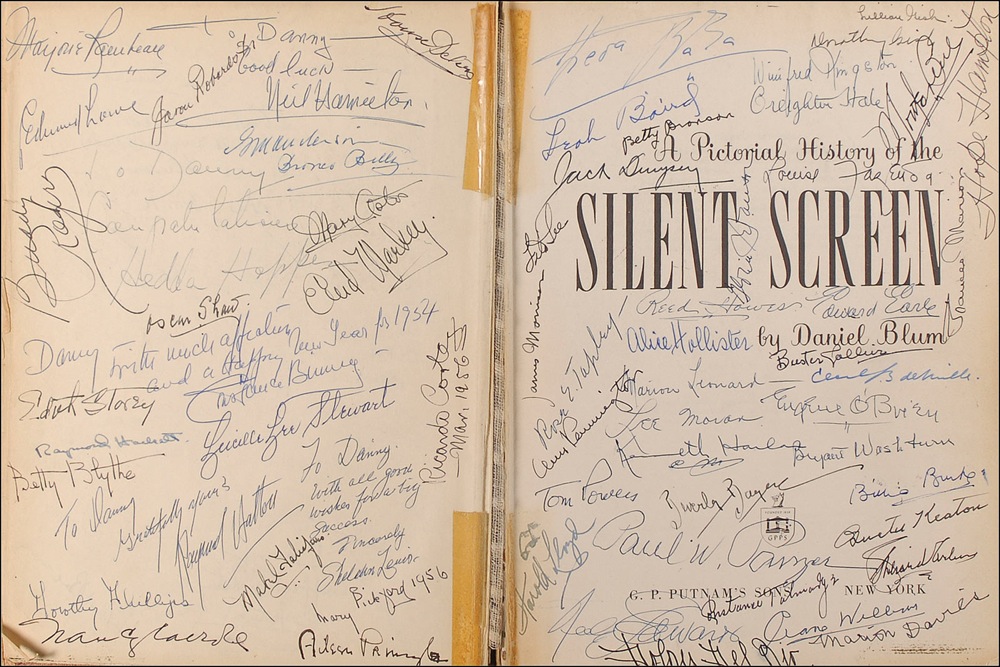 Marjorie Rambeau
To Danny
Good luck
Neil Hamilton.
Jason Robards
Edmund Lowe
GM Anderson
Broncho Billy
To Danny
Congratulations
Hedda Hopper
Buddy Rogers
Mary Astor
Enid Markey
Oscar Shaw
Danny with much affection
and a Happy New Year for 1954
Constance Binney
Edith Storey
Lucille Lee Stewart
Ricardo Cortez
Mar. 1956
Raymond Hackett
Betty Blythe
To Danny
Gratefully yours
Raymond Hatton
To Danny
With all good
wishes for a big
success.
Sincerely
Sheldon Lewis
Mabel Taliaferro
Mary Pickford 1956
Dorothy Phillips
Aileen Pringle
Theda Bara
Lillian Gish
Dorothy Gish
Winifred Kingston
Creighton Hale
Hope Hampton
Leah Baird
Betty Bronson
Jack Dempsey
A Pictorial History of the
SILENT SCREEN
Louise Fazenda
Frances Marion
James Morrison
Reed Howes
Edward Earle
Alice Hollister
by Daniel Blum
Buster Collier
Rose E. Tapley
Ann Pennington
Marion Leonard
Cecil B deMille
Lee Moran
Eugene O'Brien
Kenneth Harlan
Bryant Washburn
Tom Powers
Beverly Bayne
Billie Burke
Harold Lloyd
Paul W. Panzer
Buster Keaton
Richard Barthelmess
G. P. PUTNAM'S SONS NEW YORK
Constance Talmadge
Neal
Marion Davies